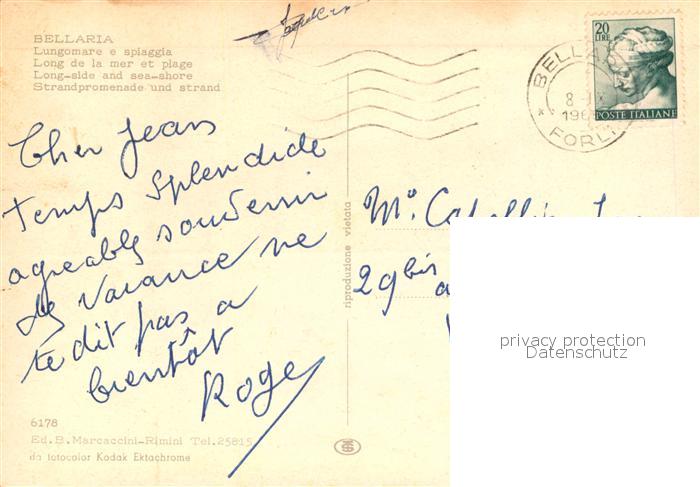 BELLARIA
Lungomare e spiaggia
Long de la mer et plage
Long-side and sea-shore
Strandpromenade und strand
20
LIRE
POSTE ITALIANE
FORLI
Cher Jean
temps splendide
agreable souvenir
de vacance ne
te dit pas a
bientôt
Roger
Mr.
29 bis
riproduzione vietata
privacy protection
Datenschutz
6178
Ed. B. Marcaccini-Rimini Tel. 25815
da fotocolor Kodak Ektachrome